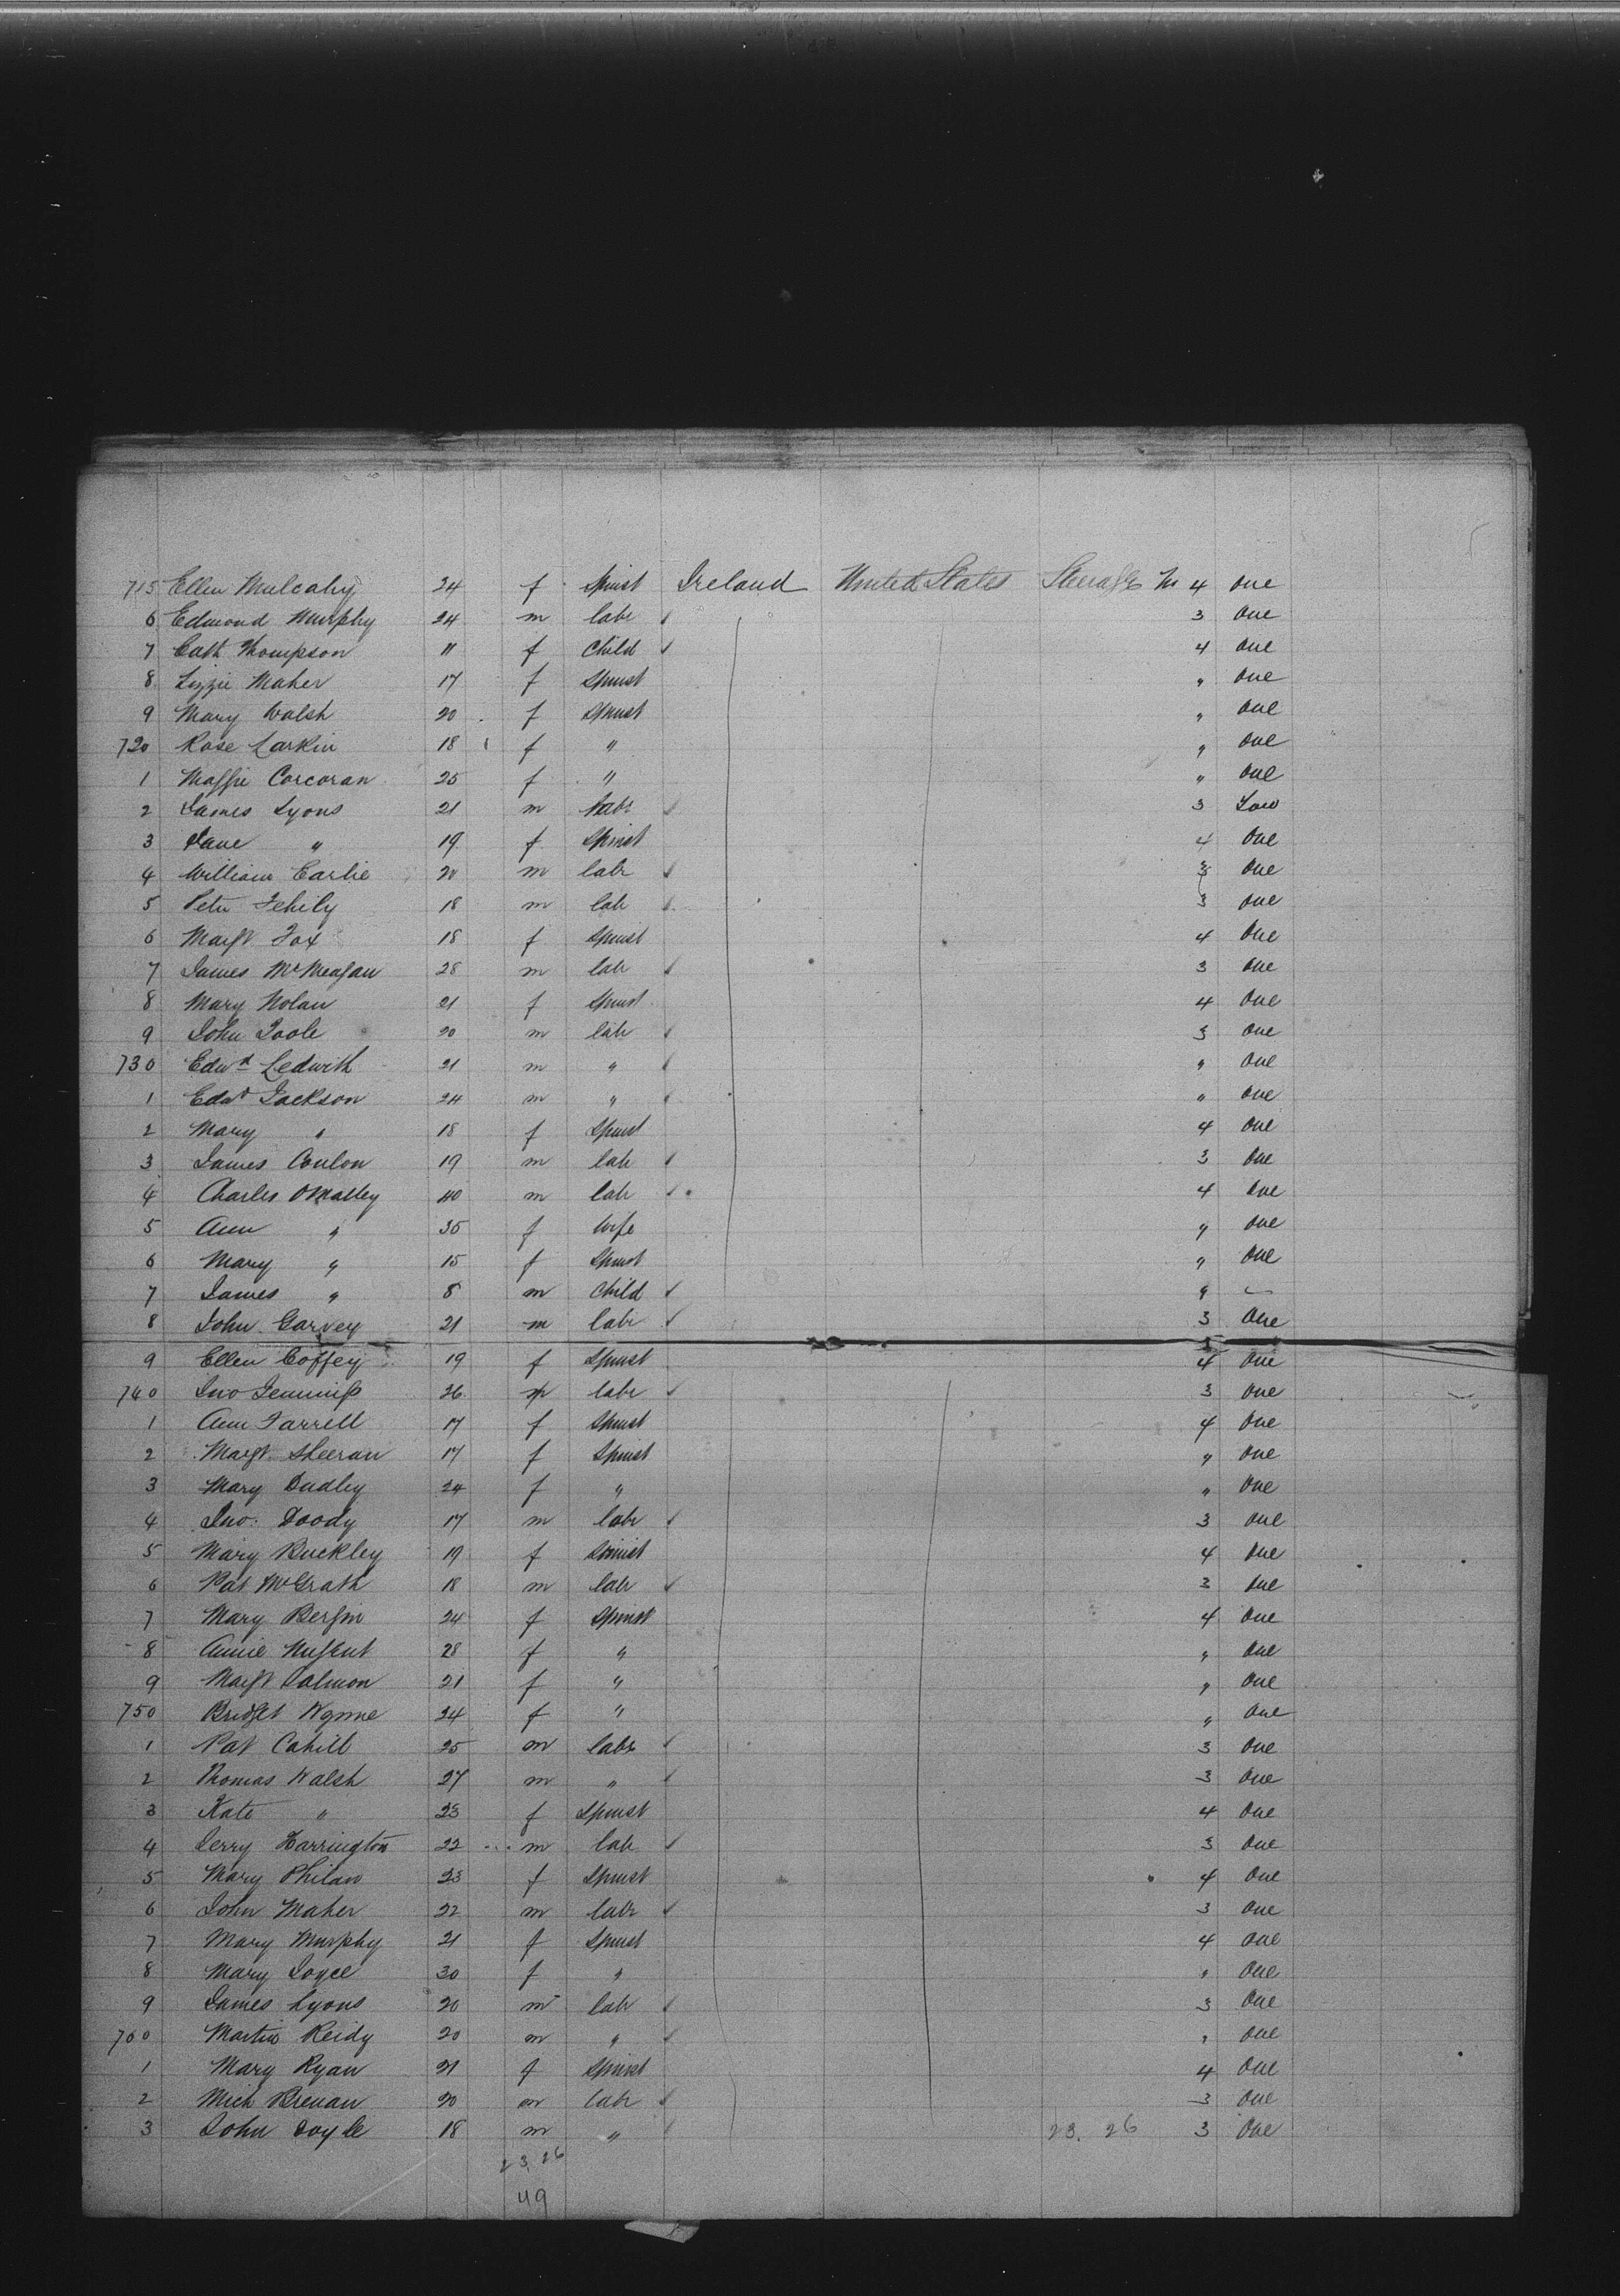 715 Ellen Mulcahy 24 f Spinst Ireland United States Steerage 4 One
6 Edmond Murphy 24 m labr 3 One
7 Cath Thompson 11 f Child 4 One
8 Lizzie Maher 17 f Spinst " One
9 Mary Walsh 20 f Spinst " One
720 Rose Larkin 18 f " " One
1 Maggie Corcoran 25 f " " One
2 James Lyons 21 m labr 3
3 Jane " 19 f Spinst 4 One
4 William Earlie 20 m labr 3 One
5 Peter Fehily 18 m lab 3 One
6 Margt Fox 18 f Spinst 4 One
7 James 28 m labr 3 One
8 Mary Nolan 21 f Spinst 4 One
9 John Toole 20 m labr 3 One
730 Edwd Ledwith 21 m " " One
1 Edwd Jackson 24 m " " One
2 Mary " 18 f Spinst 4 One
3 James Conlon 19 m lab 3 One
4 Charles OMalley 40 m labr 4 One
5 Ann " 35 f Wife " One
6 Mary " 15 f Spinst " One
7 James " 8 m Child "
8 John Garvey 21 m labr 3 One
9 Ellen Coffey 19 f Spinst 4 One
740 Jno Jennings 26 m labr 3 One
1 Ann Farrell 17 f Spinst 4 One
2 Margt Sheeran 17 f Spinst " One
3 Mary Dudley 24 f " " One
4 Jno. Doody 17 m labr 3 One
5 Mary Buckley 19 f Spinist 4 One
6 Pat McGrath 18 m labr 3 One
7 Mary Bergin 24 f Spinst 4 One
8 Annie Nugent 28 f " " One
9 Margt Salmon 21 f " " One
750 Bridget Wynne 24 f " " One
1 Pat Cahill 25 m labr 3 One
2 Thomas Walsh 27 m " 3 One
3 Kate " 23 f Spinst 4 One
4 Jerry Harrington 22 m lab 3 One
5 Mary Philan 23 f Spinst 4 One
6 John Maher 22 m labr 3 One
7 Mary Murphy 21 f Spinst 4 One
8 Mary Joyce 30 f " " One
9 James Lyons 20 m labr 3 One
760 Martin Reidy 20 m " " One
1 Mary Ryan 21 f Spinst 4 One
2 Mich Brenan 20 m labr 3 One
3 John Doyle 18 m " 23. 26 3 One
23, 26
49